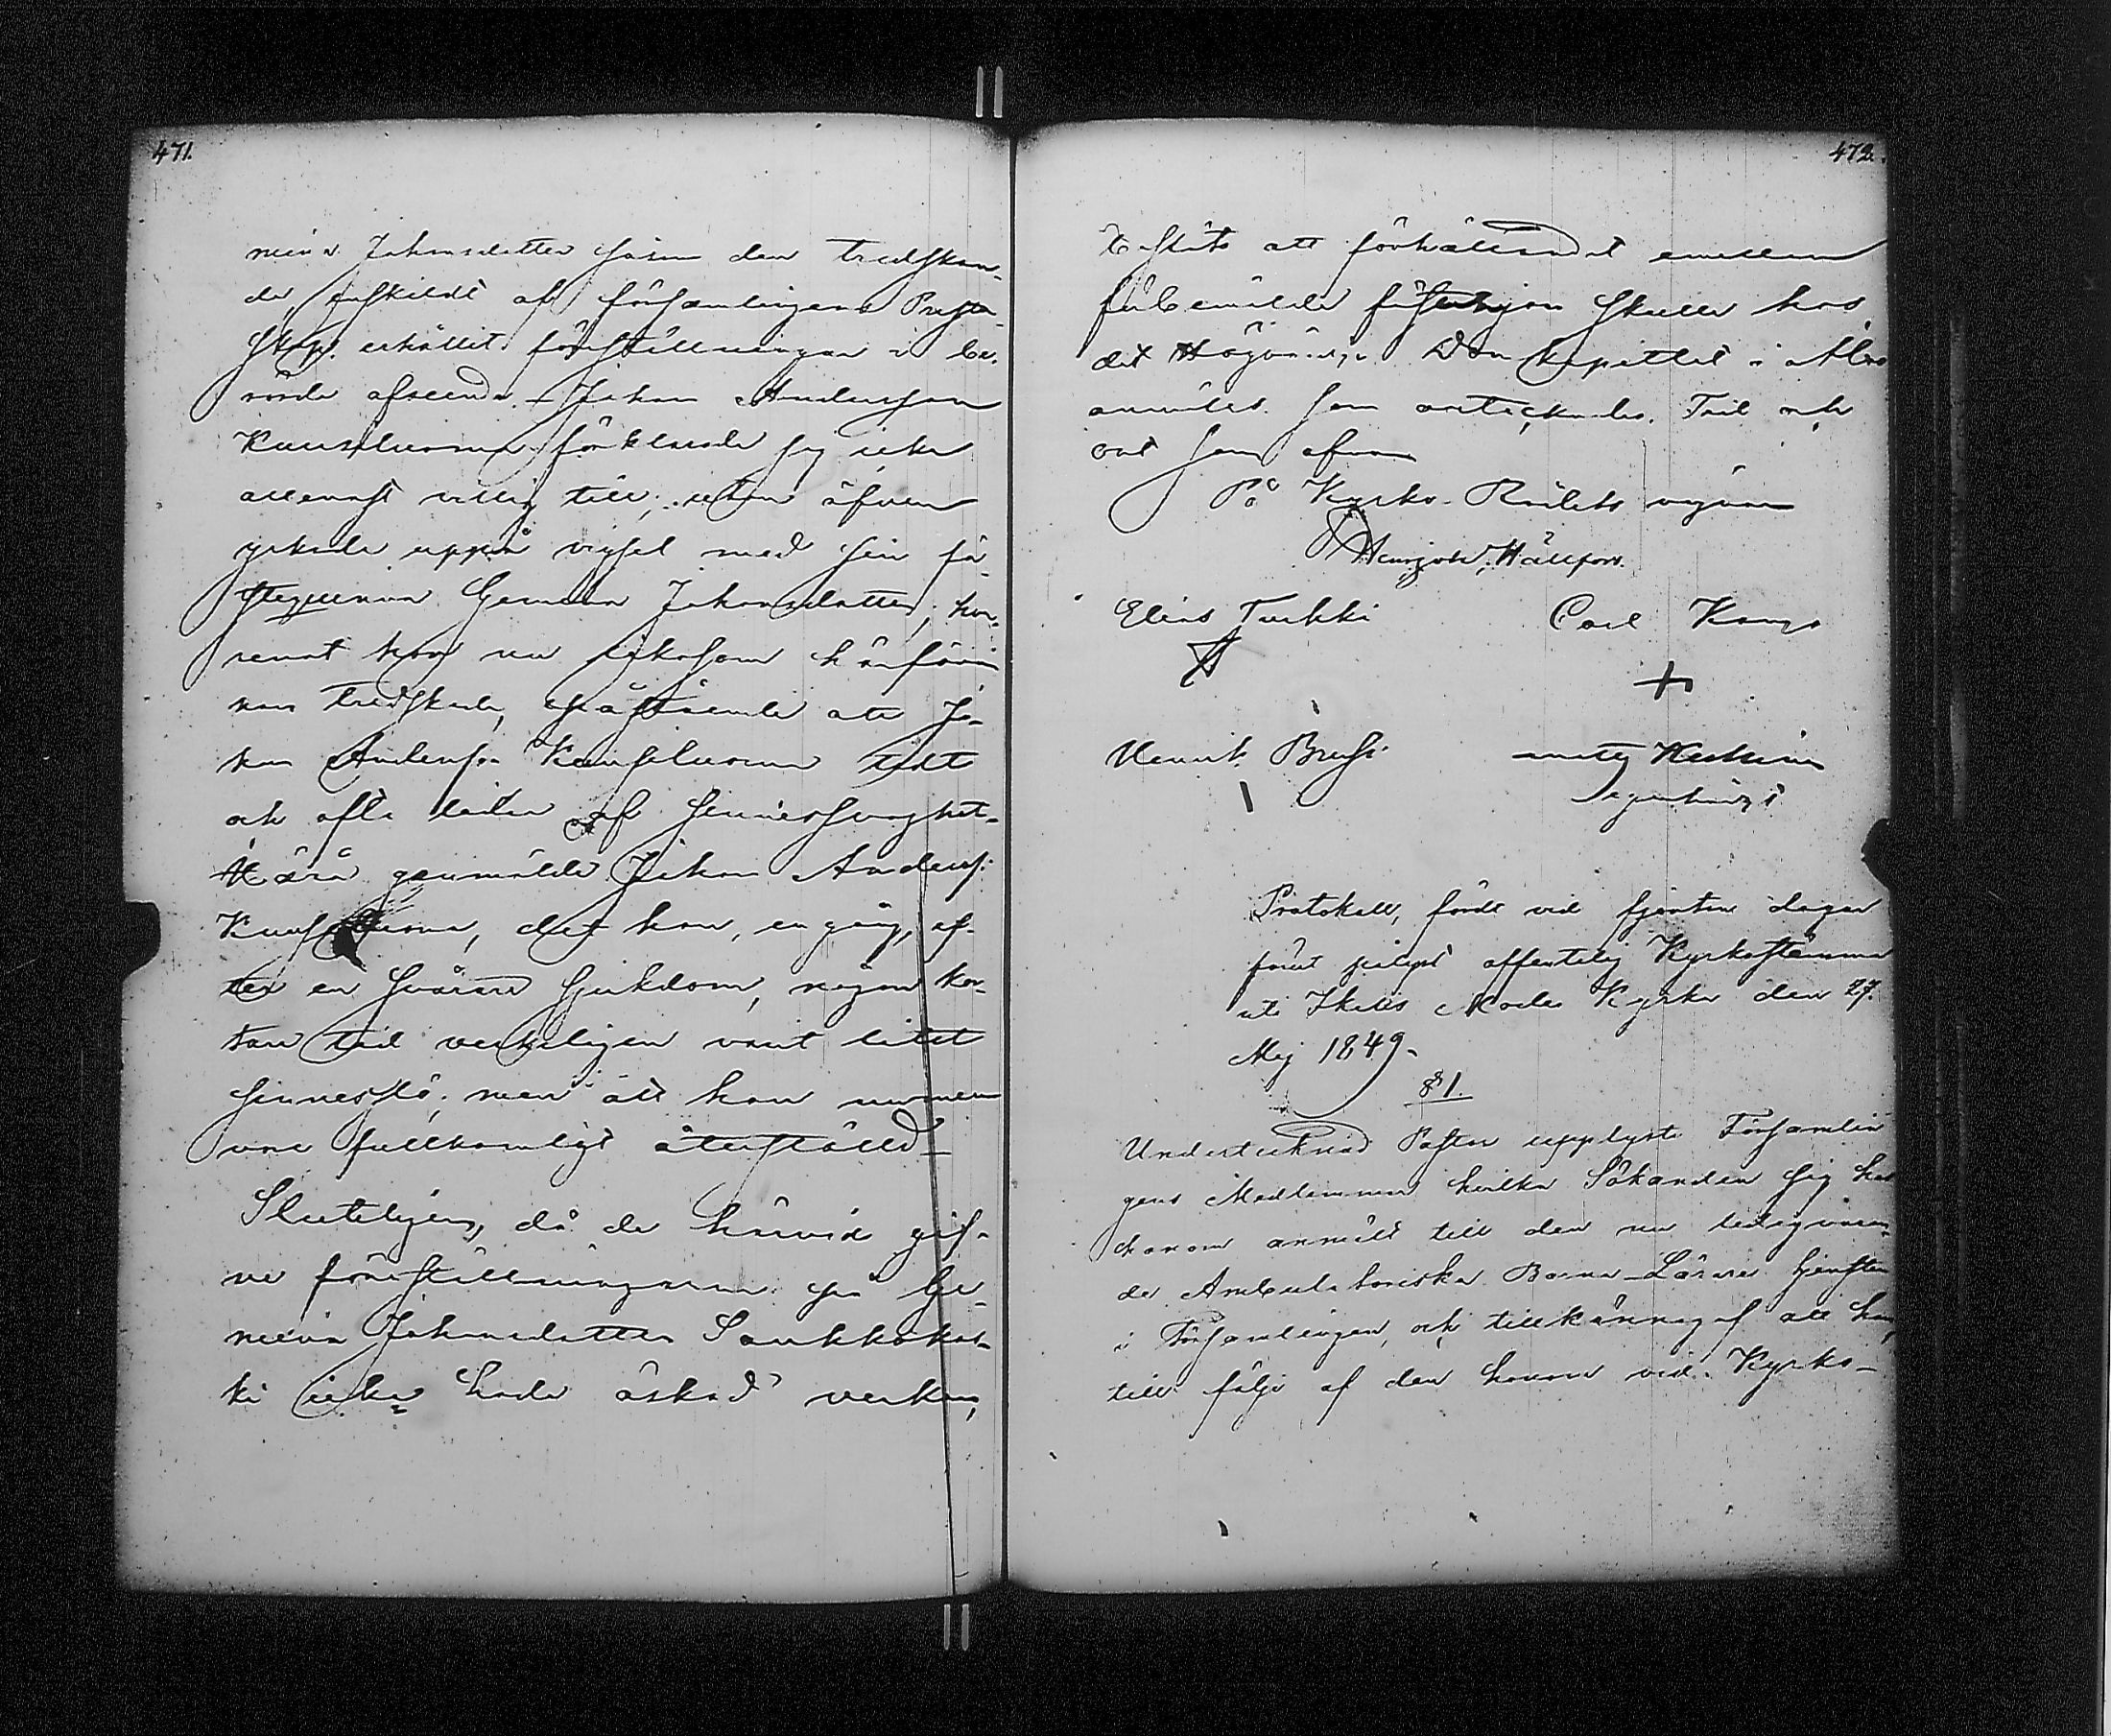 471.
meina Johansdotter såsom den tredskan-
de enskildt af församlingens Prester-
skap erhållit föreställningar i be-
rörde afseende. Johan Andersson
förklarade sig icke
allenast villig till, utan äfven
yrkade uppå vigsel med sin fä-
steqvinna Gemeina Johansdotter, hva-
remot hon nu liksom härförin-
nan tredskade, påstående att Jo-
han Andersson tidt
och ofta lider af sinnessvaghet.
Härå genmälde Johan Anderss:
det han, en gång, ef-
ter en svårare sjukdom, någon kor-
tare tid verkeligen varit litet
sinnesslö; men att han nu mera
vore fullkomligt återställd.
Sluteligen, då de härvid gif-
ne föreställningarne på Ge-
meina Johansdotter Saukkokos-
ki icke hade åstad verkan,
472.
beslöts att förhållandet emellan
förbemälde fästehjon skulle hos
det Högvördige Domkapitlet i Åbo
anmälas. Som antecknades. Tid och
ort som ofvan
På Kyrko-Rådets vägnar
Hällfors.
Elias Turkki Carl Kangas
Henrik Brusi
Protokoll, fördt vid fjorton dagar
förut pålyst offentelig Kyrkostämma
uti Ikalis Moder Kyrka den 27.
Maj 1849.
§ 1.
Undertecknad Pastor upplyste Församlin
gens Medlemmar hvilka Sökanden sig hos
honom anmält till den nu ledig varan-
de Ambulatoriska Barna-Lärare tjensten
i Församlingen, och tillkännagaf att han,
till följe af den honom vid Kyrko-